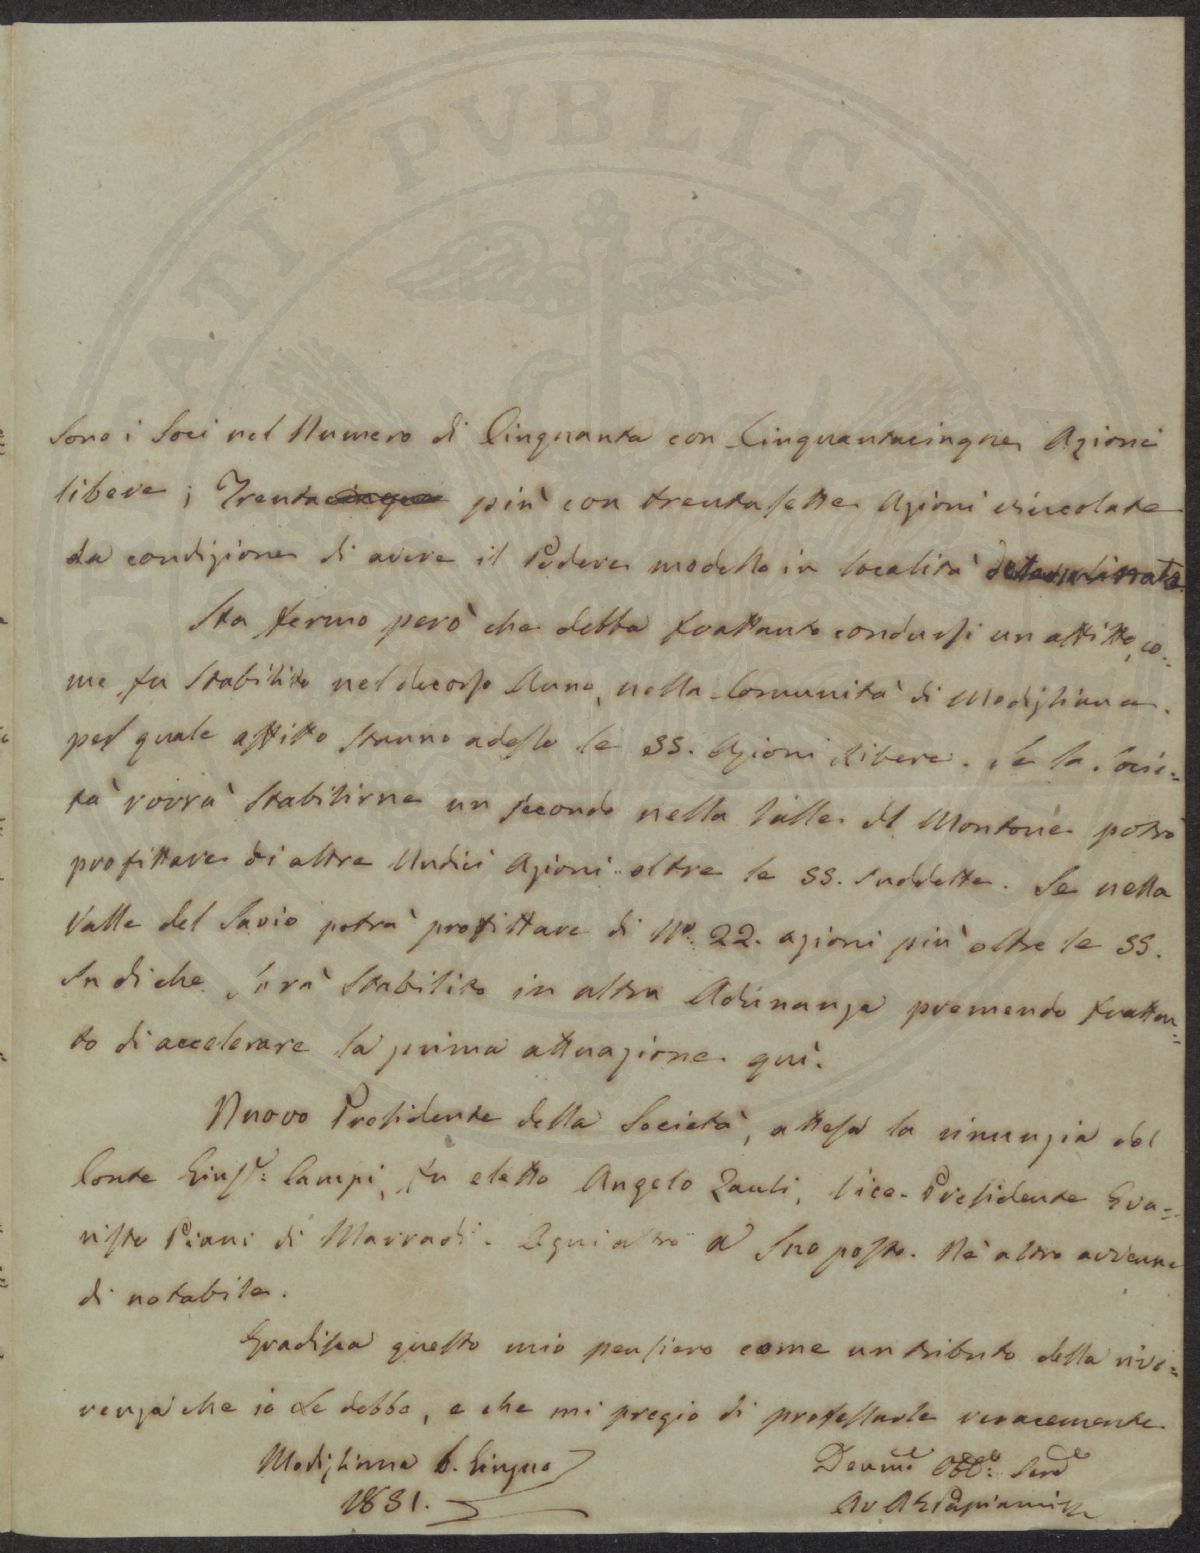 PVBLICAE
Sono i Soci nel Numero di Cinquanta con Cinquantacinque Azioni
libere; Trentacinque più con trentasette Azioni vincolate
da condizione di avere il Podere modello in località determinata
Sta fermo però che debba frattanto condursi un affitto, co=
me fu stabilito nel decorso Anno, nella Comunità di Modigliana.
pel quale affitto stanno adesso le 55. Azioni Libere. Se la Socie=
tà vorrà stabilirne un secondo nella Valle del Montone potrà
profittare di altre Undici Azioni oltre le 55. suddette. Se nella
Valle del Savio potrà profittare di No. 22. azioni più oltre le 55.
Su di che sarà stabilito in altra Adunanza premendo frattan=
to di accelerare la prima attuazione quì.
Nuovo Presidente della Società, attesa la rinunzia del
Conte Gius.e Campi, fu eletto Angelo Zauli, Vice-Presidente Eva=
risto Piani di Marradi. Ogni altro a suo posto. Nè altro avvenne
di notabile.
Gradisca questo mio pensiero come un tributo della rive=
renza che io Le debbo, e che mi pregio di professarle veracemente
Modigliana 6. Giugno
1851.
Devmo Obb. Serv
Av